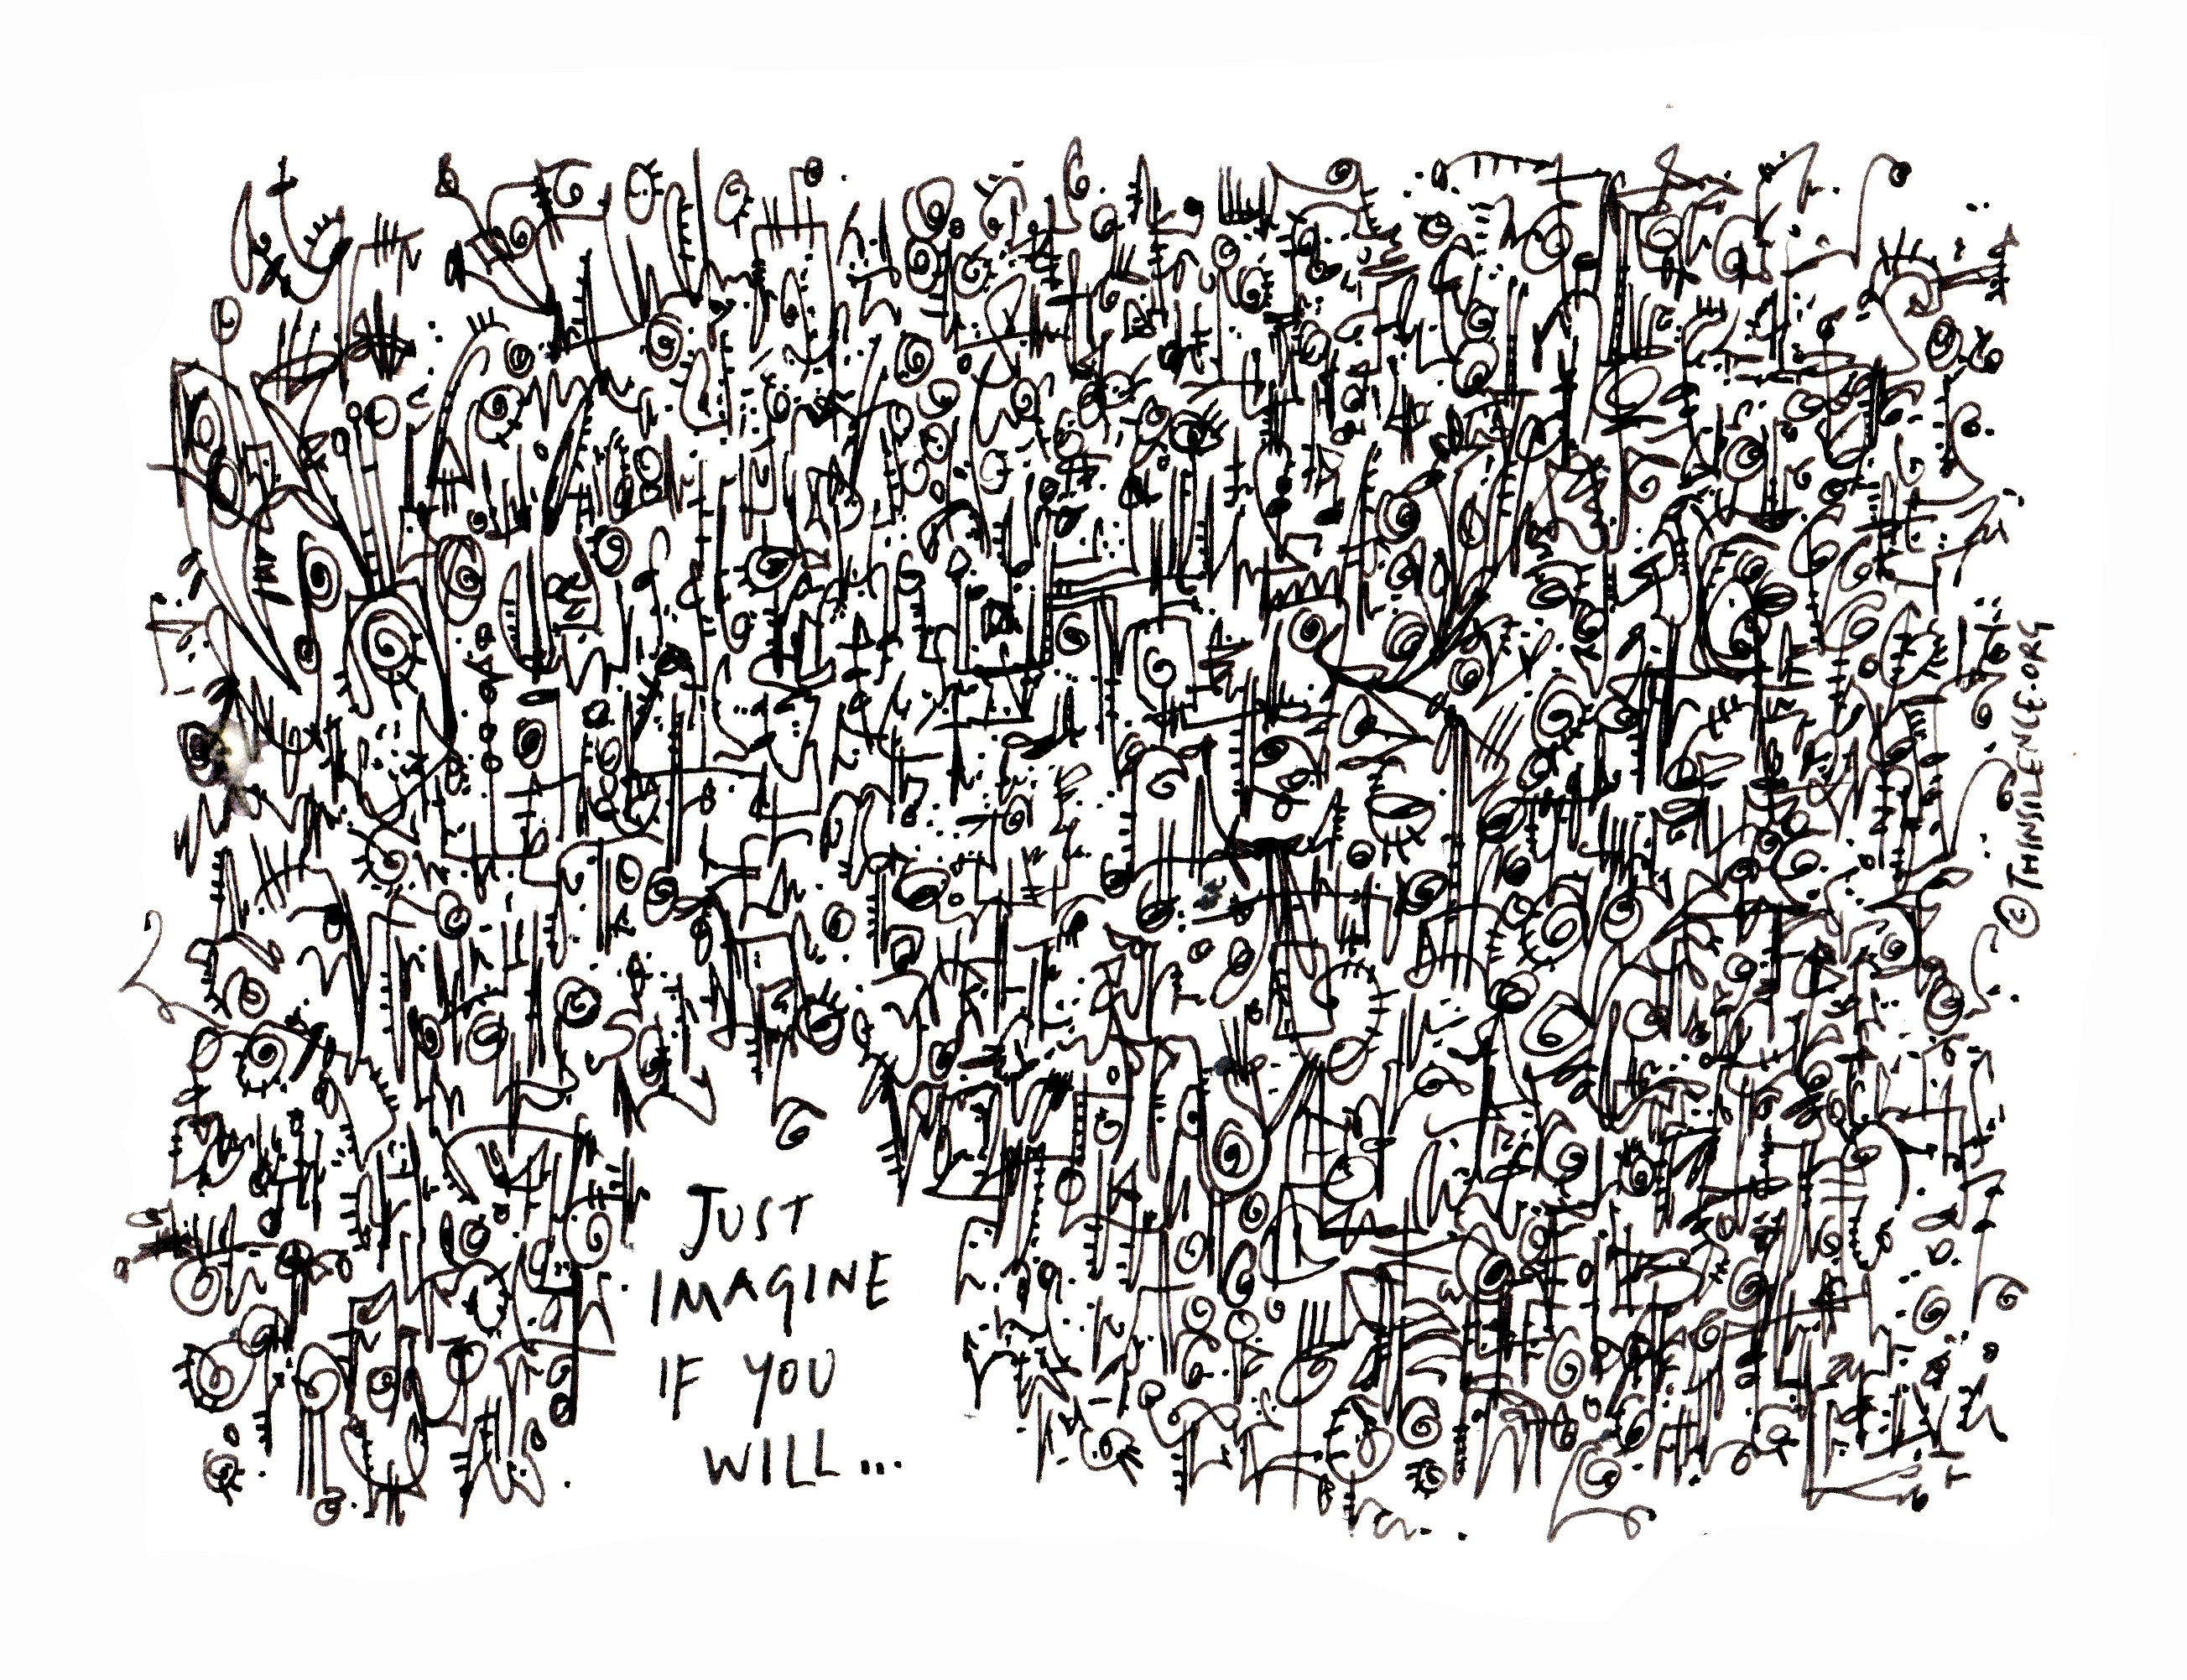 JUST
IMAGINE
IF YOU
WILL...
© THINSILENCE.ORG